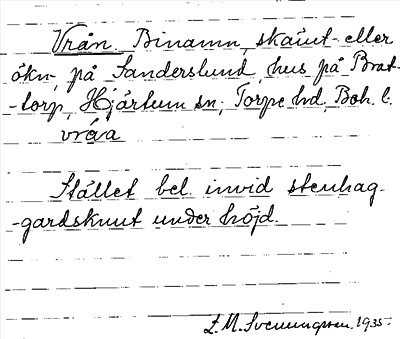 Vrån. Binamn, skämt- eller
ökn-, på Sanderslund, hus på Brat-
-torp, Hjärtum sn; Torpe hd, Boh. l.
vråa
Stället bel. invid stenhag-
-gardsknut under höjd.
L. M. Svenungsson. 1935.